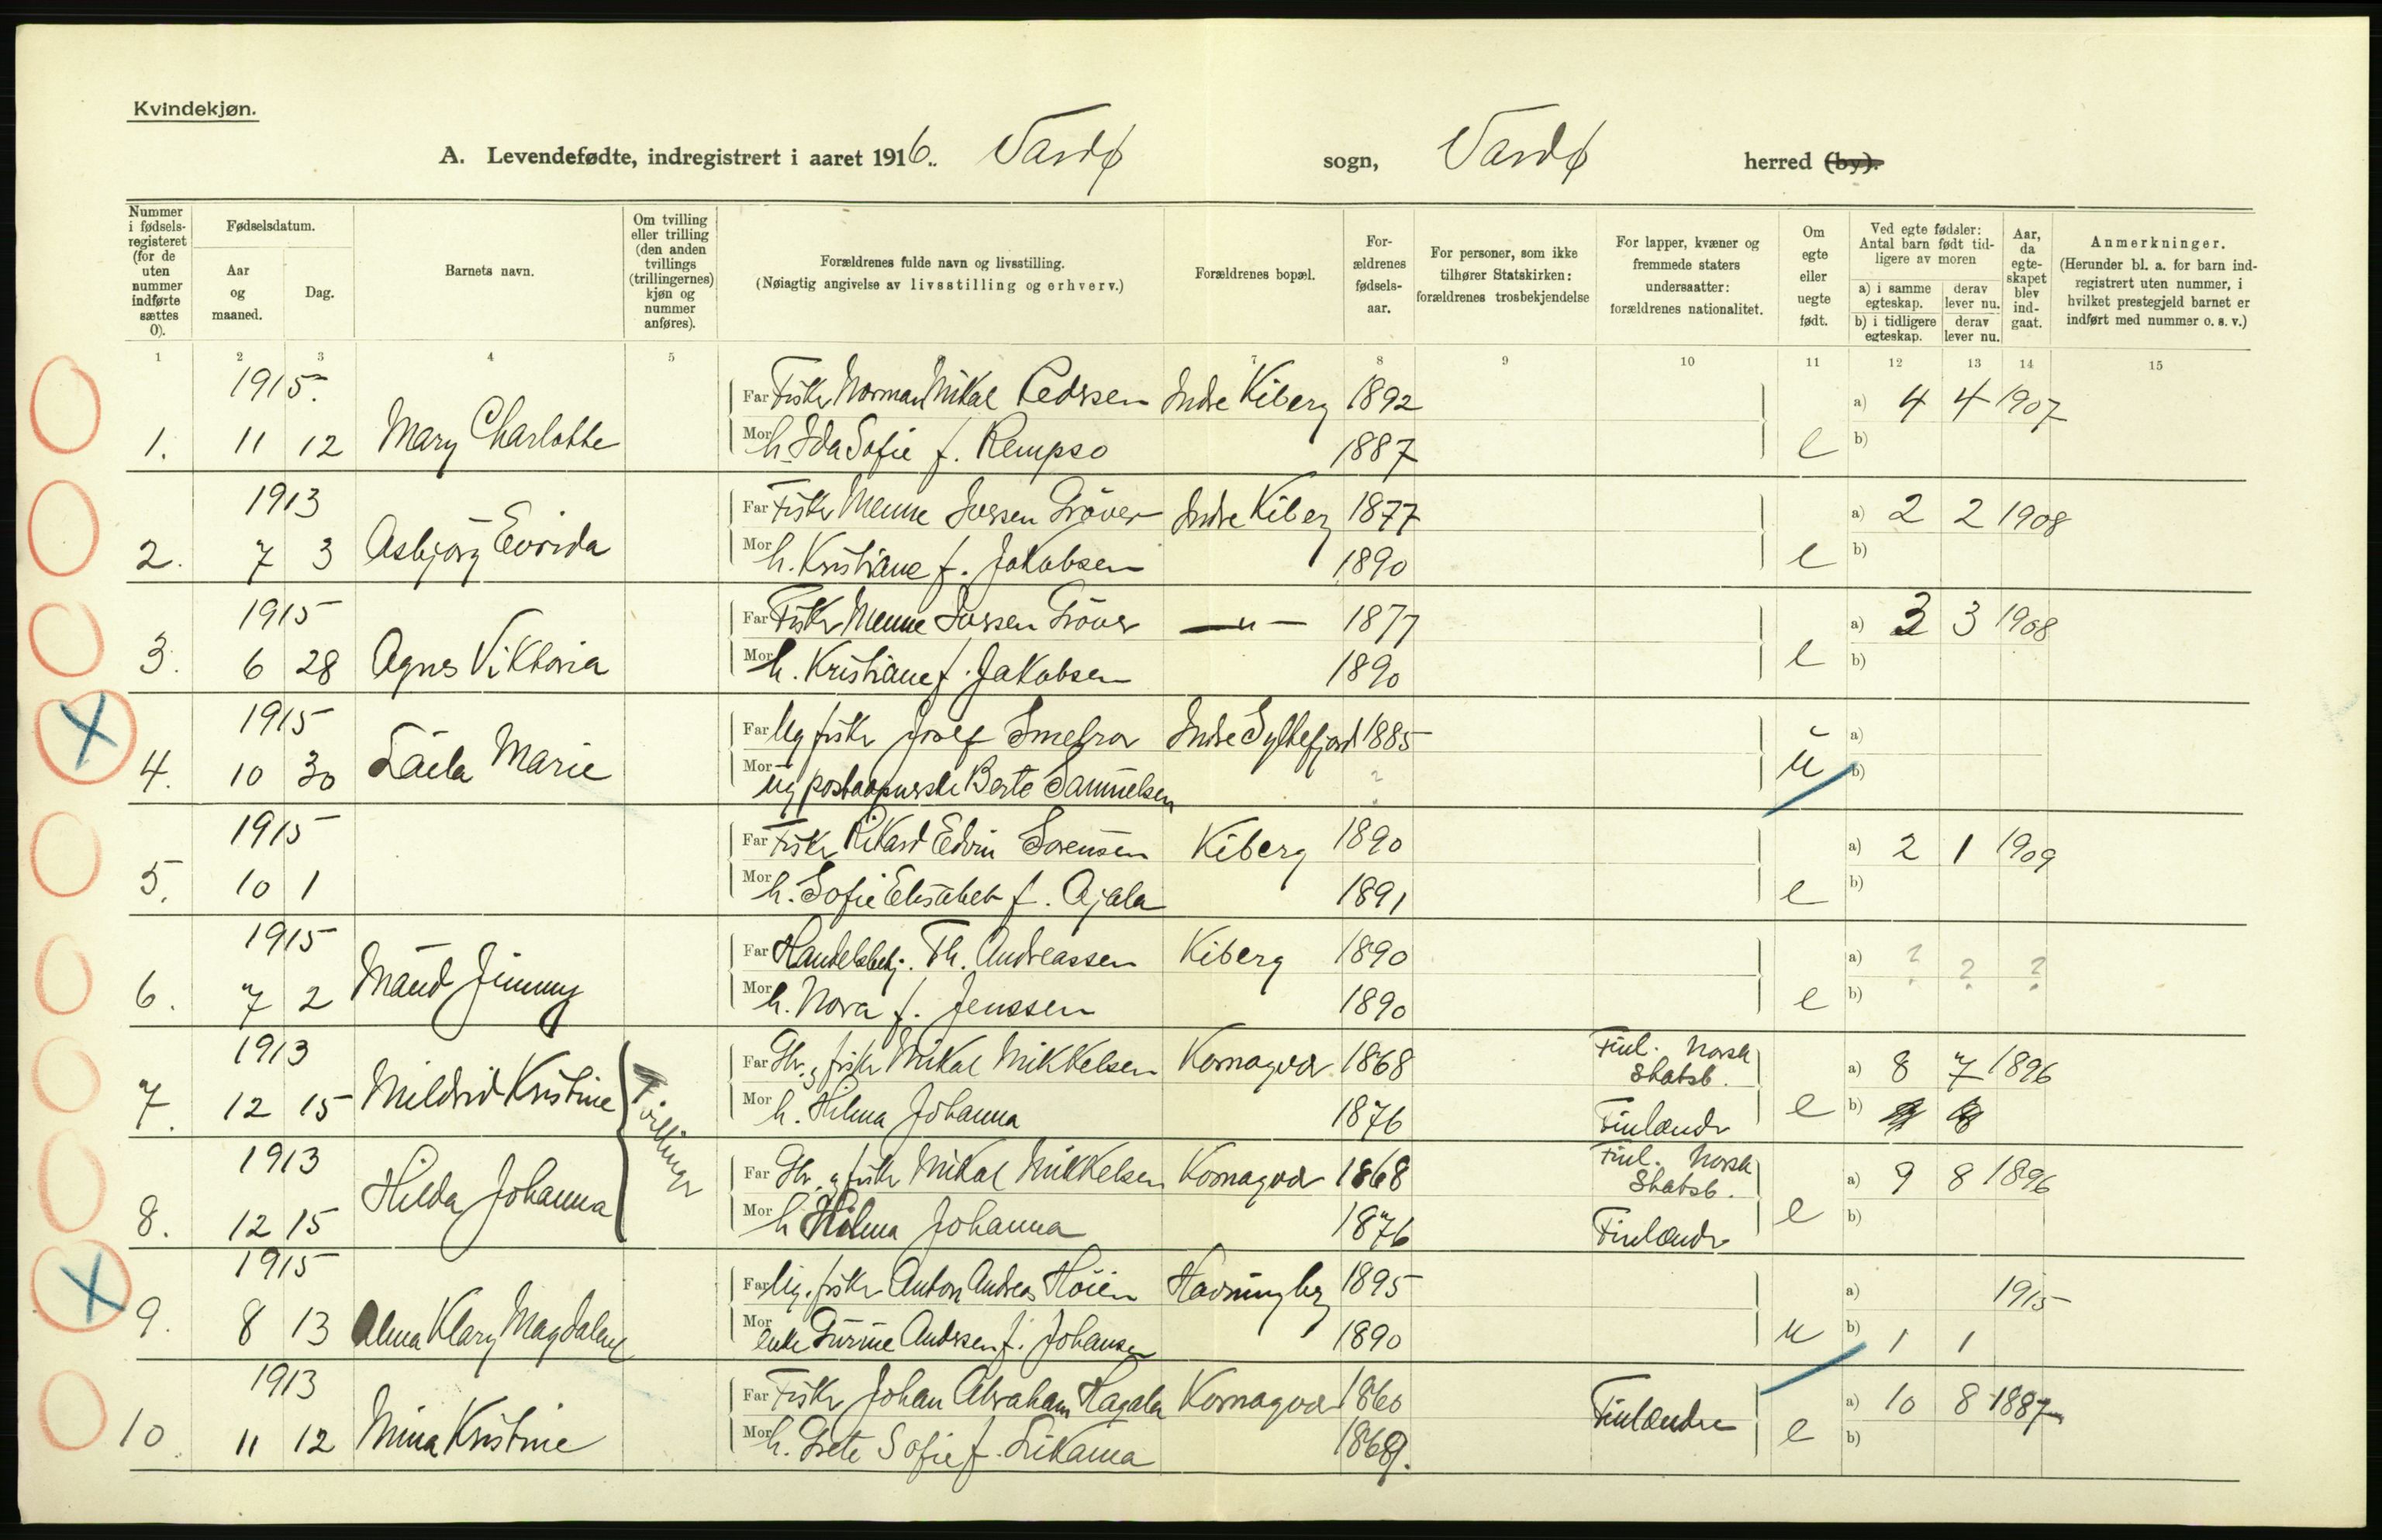 Kvindekjøn.
A. Levendefødte, indregistrert i aaret 1916. Vardø sogn, Vardø herred (by).
Nummer i fødselsregisteret (for de uten nummer indførte sættes 0).
Fødselsdatum.
Aar og maaned.
Dag.
Barnets navn.
Om tvilling eller trilling (den anden tvillings (trillingernes) kjøn og nummer anføres).
Forældrenes fulde navn og livsstilling.
(Nøiagtig angivelse av livsstilling og erhverv.)
Forældrenes bopæl.
Forældrenes fødselsaar.
For personer, som ikke tilhører Statskirken: forældrenes trosbekjendelse
For lapper, kvæner og fremmede staters undersaatter: forældrenes nationalitet.
Om egte eller uegte født.
Ved egte fødsler: Antal barn født tidligere av moren
a) i samme egteskap. derav lever nu.
b) i tidligere egteskap. derav lever nu.
Aar, da egteskapet blev indgaat.
Anmerkninger.
(Herunder bl. a. for barn indregistrert uten nummer, i hvilket prestegjeld barnet er indført med nummer o. s. v.)
1 2 3 4 5 7 8 9 10 11 12 13 14 15
1915. Far Fisker Norman Mikal Pedersen Indre Kiberg 1892 a) 4 4 1907
1. 11 12 Mary Charlotte Mor h. Ida Sofie f. Rempso 1887 e b)
1913 Far Fisker Menne Iversen Gröver Indre Kiberg 1877 a) 2 2 1908
2. 7 3 Asbjörg Evrida Mor h. Kristiane f. Jakobsen 1890 e b)
1915 Far Fisker Menne Iversen Gröver —"— 1877 a) 3 3 1908
3. 6 28 Agnes Viktoria Mor h. Kristiane f. Jakobsen 1890 e b)
1915 Far Ug fisker Josef Smefror Indre Syltefjord 1885 a)
4. 10 30 Laila Marie Mor ug postaapnerske Berte Samuelsen ? u b)
1915 Far Fisker Rikard Edvin Sörensen Kiberg 1890 a) 2 1 1909
5. 10 1 Mor h. Sofie Elisabet f. Ajala 1891 e b)
1915 Far Handelsbetj. Th. Andreassen Kiberg 1890 a) ? ? ?
6. 7 2 Maud Jimmy Mor h. Nora f. Jenssen 1890 e b)
1913 Far Gbr. og fisker Mikal Mikkelsen Komagvær 1868 Finl. Norsk Statsb. a) 8 7 1896
7. 12 15 Mildrid Kristine Tvillinger Mor h. Hilma Johanna 1876 Finlænder e b)
1913 Far Gbr. og fisker Mikal Mikkelsen Komagvær 1868 Finl. Norsk Statsb. a) 9 8 1896
8. 12 15 Hilda Johanna Mor h Hilma Johanna 1876 Finlænder e b)
1915 Far Ug. fisker Anton Andreas Höien Havningberg 1895 a) 1915
9. 8 13 Alma Klary Magdalene Mor enke Gurine Andersen f. Johansen 1890 u b) 1 1
1913 Far Fisker Johan Abraham Hagala Komagvær 1860 Finlændere a) 10 8 1887
10. 11 12 Mina Kristine Mor h. Grete Sofie f. Sikama 1869. e b)